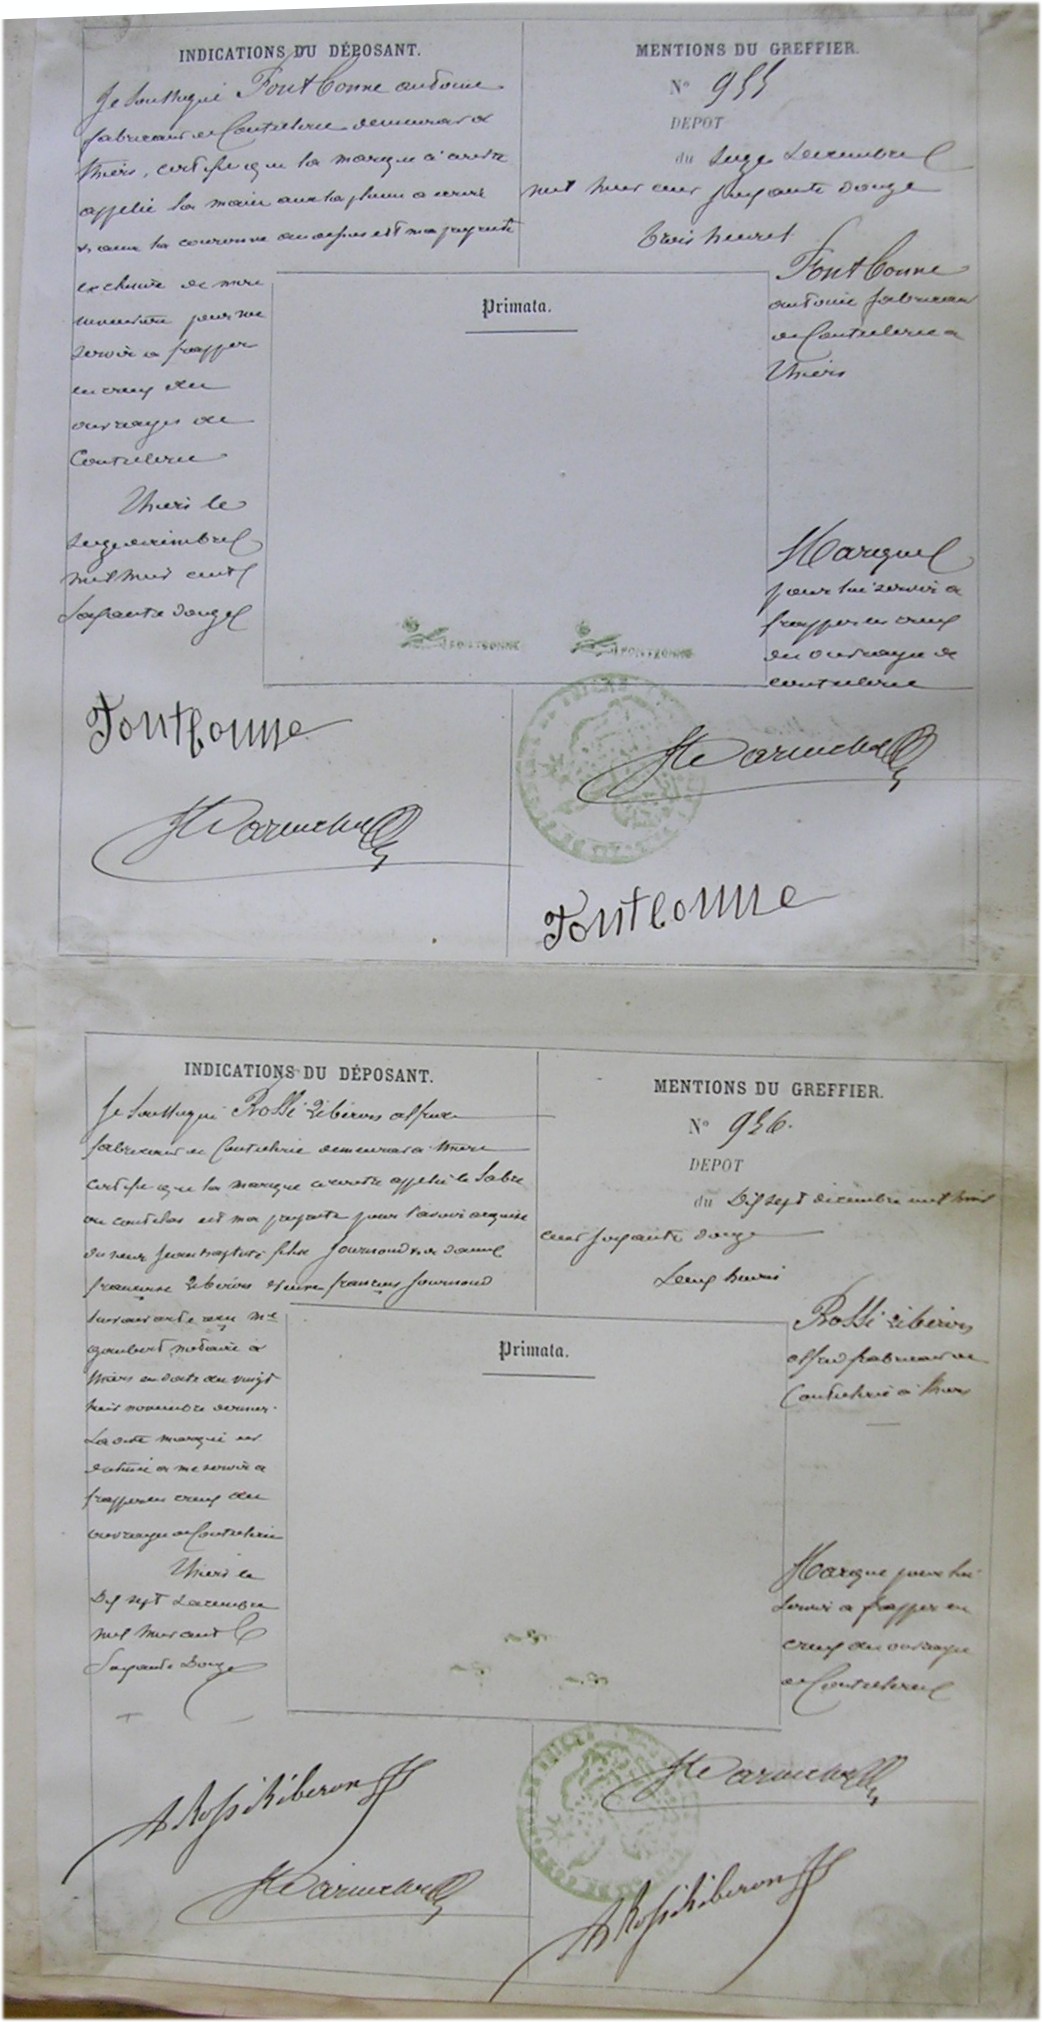 INDICATIONS DU DÉPOSANT.
Je soussigné Fontbonne antoine
fabricant de Coutellerie demeurant a
thiers, certifie que la marque ci contre
appelée la main avec la plume a écrire
et avec la couronne au dessus est ma propriété
exclusive de mon
pour me
servir a frapper
en creux des
ouvrages de
Coutellerie
Thiers le
seize decembre
mil huit cent
soixante douze
Fontbonne
MENTIONS DU GREFFIER.
N° 955
DEPOT
du seize Decembre
mil huit cent soixante douze
trois heures
Primata.
Fontbonne
antoine fabricant
de Coutellerie a
Thiers
Marque
pour lui servir a
frapper en creux
des ouvrages de
coutellerie
FONTBONNE
FONTBONNE
Fontbonne
INDICATIONS DU DÉPOSANT.
Je soussigné Rossi Riberon alfred
fabricant de Coutellerie demeurant a thiers
certifie que la marque ci contre appelée le Sabre
ou coutelas est ma propriété pour l'avoir acquise
du sieur Jean baptiste fils Journoud et de dame
francoise Riberon veuve francois Journoud
suivant acte reçu Me
Gaubert notaire a
thiers en date du vingt
huit novembre dernier.
La dite marque est
destinée a me servir a
frapper en creux des
ouvrages de Coutellerie
Thiers le
Dix sept Decembre
mil huit cent
soixante Douze
A Rossi Riberon
MENTIONS DU GREFFIER.
N° 956.
DEPOT
du Dix sept decembre mil huit
cent soixante douze
Deux heures
Primata.
Rossi Riberon
alfred fabricant de
Coutellerie a thiers
Marque pour lui
servir a frapper en
creux des ouvrages
de Coutellerie
A Rossi Riberon